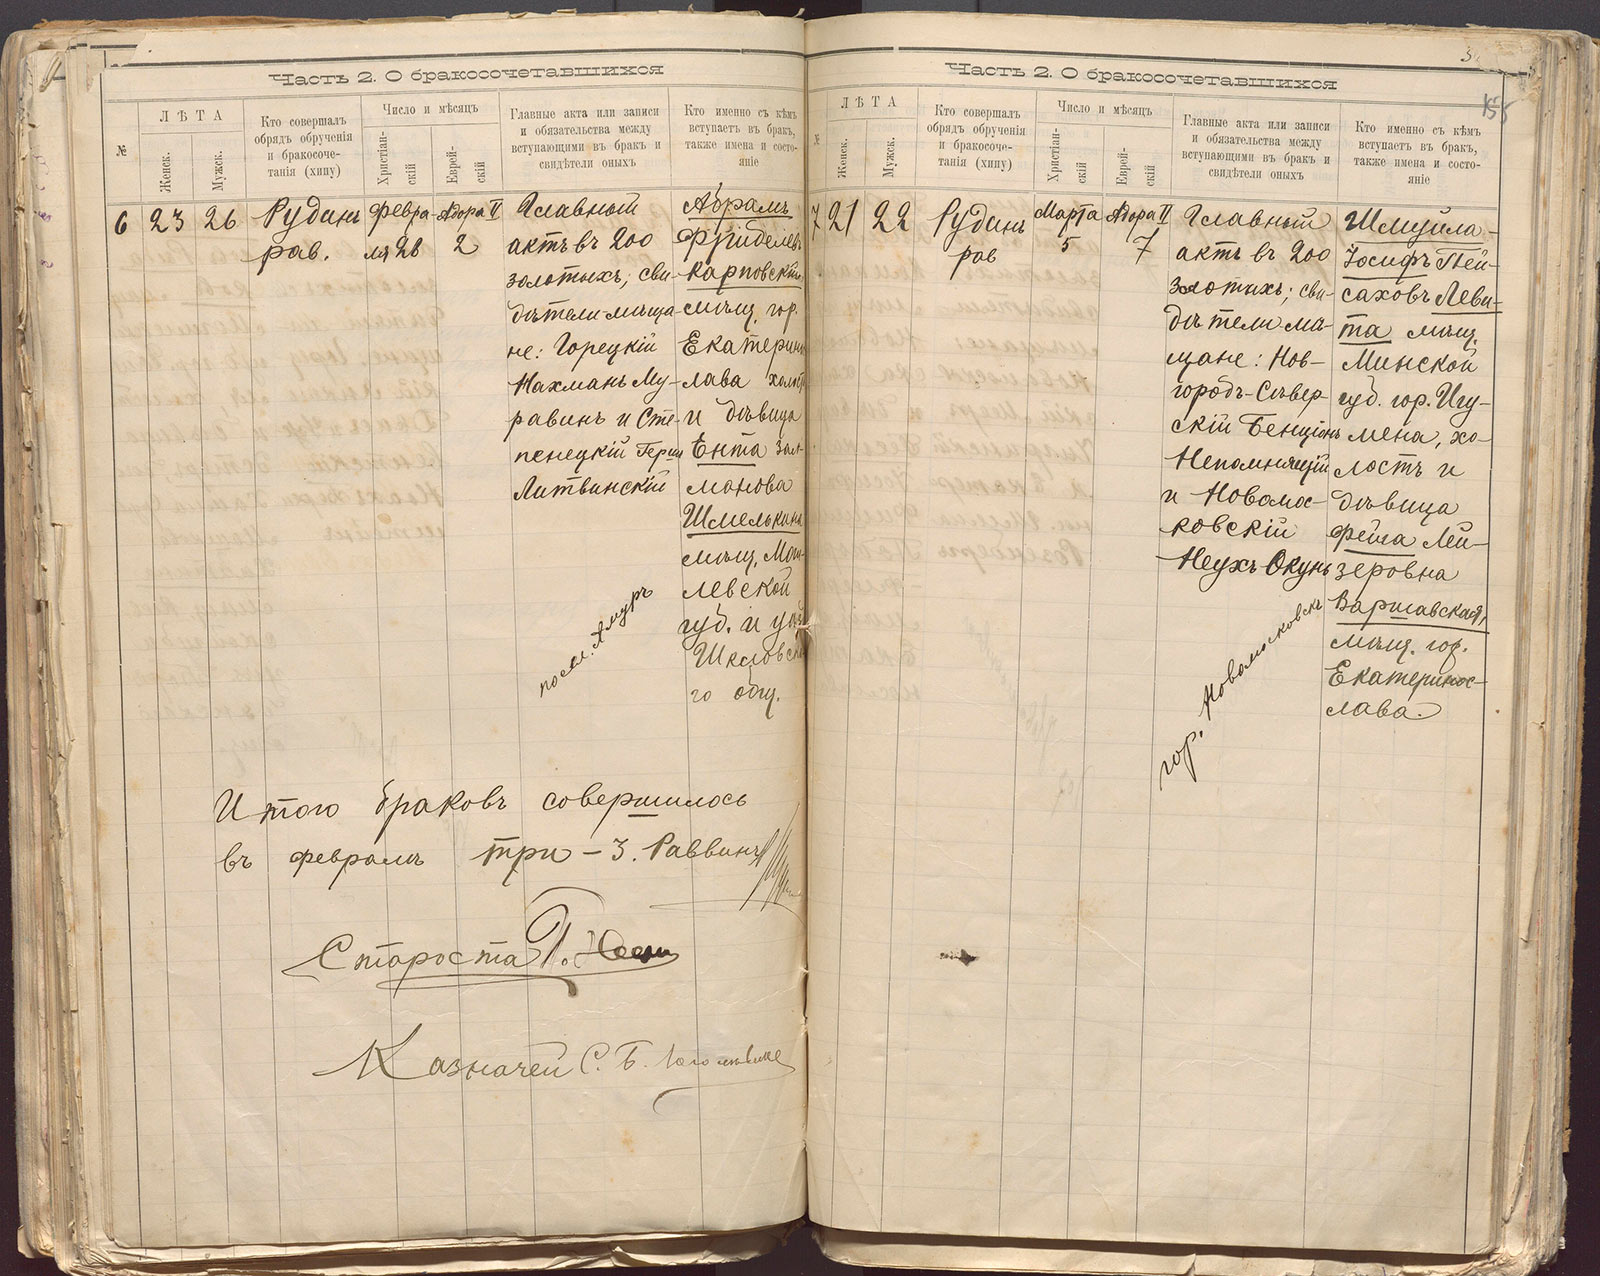 Часть 2. О бракосочетавшихся
№
ЛѢТА
Женск.
Мужск.
Кто совершалъ
обрядъ обрученія
и бракосоче-
танія (хипу)
Число и мѣсяцъ
Христіан-
скій
Еврей-
скій
Главные акта или записи
и обязательства между
вступающими въ бракъ и
свидѣтели оныхъ
Кто именно съ кѣмъ
вступаетъ въ бракъ,
также имена и состо-
яніе
6
23
26
Рудинъ
рав.
Февра-
ля 28
Адора II
2
Главный
актъ въ 200
золотыхъ; сви-
дѣтели мѣща-
не: Горецкій
Нахманъ Му-
равинъ и Сте-
пенецкій Герш
Литвинскій
посел. Амуръ
Абрамъ
Фриделевъ
Карповскій
мѣщ. гор.
Екатерино
лава холост
и дѣвица
Ента Зал-
манова
Шмелькина
мѣщ. Моги-
левской
губ. и уѣз
Шкловска
го общ.
Итого браковъ совершилось
въ февралѣ три – 3. Раввинъ
Староста
Казначей С. Б.
Часть 2. О бракосочетавшихся
155
№
ЛѢТА
Женск.
Мужск.
Кто совершалъ
обрядъ обрученія
и бракосоче-
танія (хипу)
Число и мѣсяцъ
Христіан-
скій
Еврей-
скій
Главные акта или записи
и обязательства между
вступающими въ бракъ и
свидѣтели оныхъ
Кто именно съ кѣмъ
вступаетъ въ бракъ,
также имена и состо-
яніе
7
21
22
Рудинъ
рав
Марта
5
Адора II
7
Главный
актъ въ 200
золотыхъ; сви-
дѣтели мѣ-
щане: Нов-
городъ-Сѣвер-
скій Бенціонъ
Непомнящій
и Новомос-
ковскій
Неухъ Окунь
гор. Новомосковскъ
Шмуйла-
Іосифъ Пей-
саховъ Леви-
та мѣщ.
Минской
губ. гор. Игу-
мена, хо-
лостъ и
дѣвица
Фейга Лей-
зеровна
Варшавская,
мѣщ. гор.
Екатеринос-
лава.